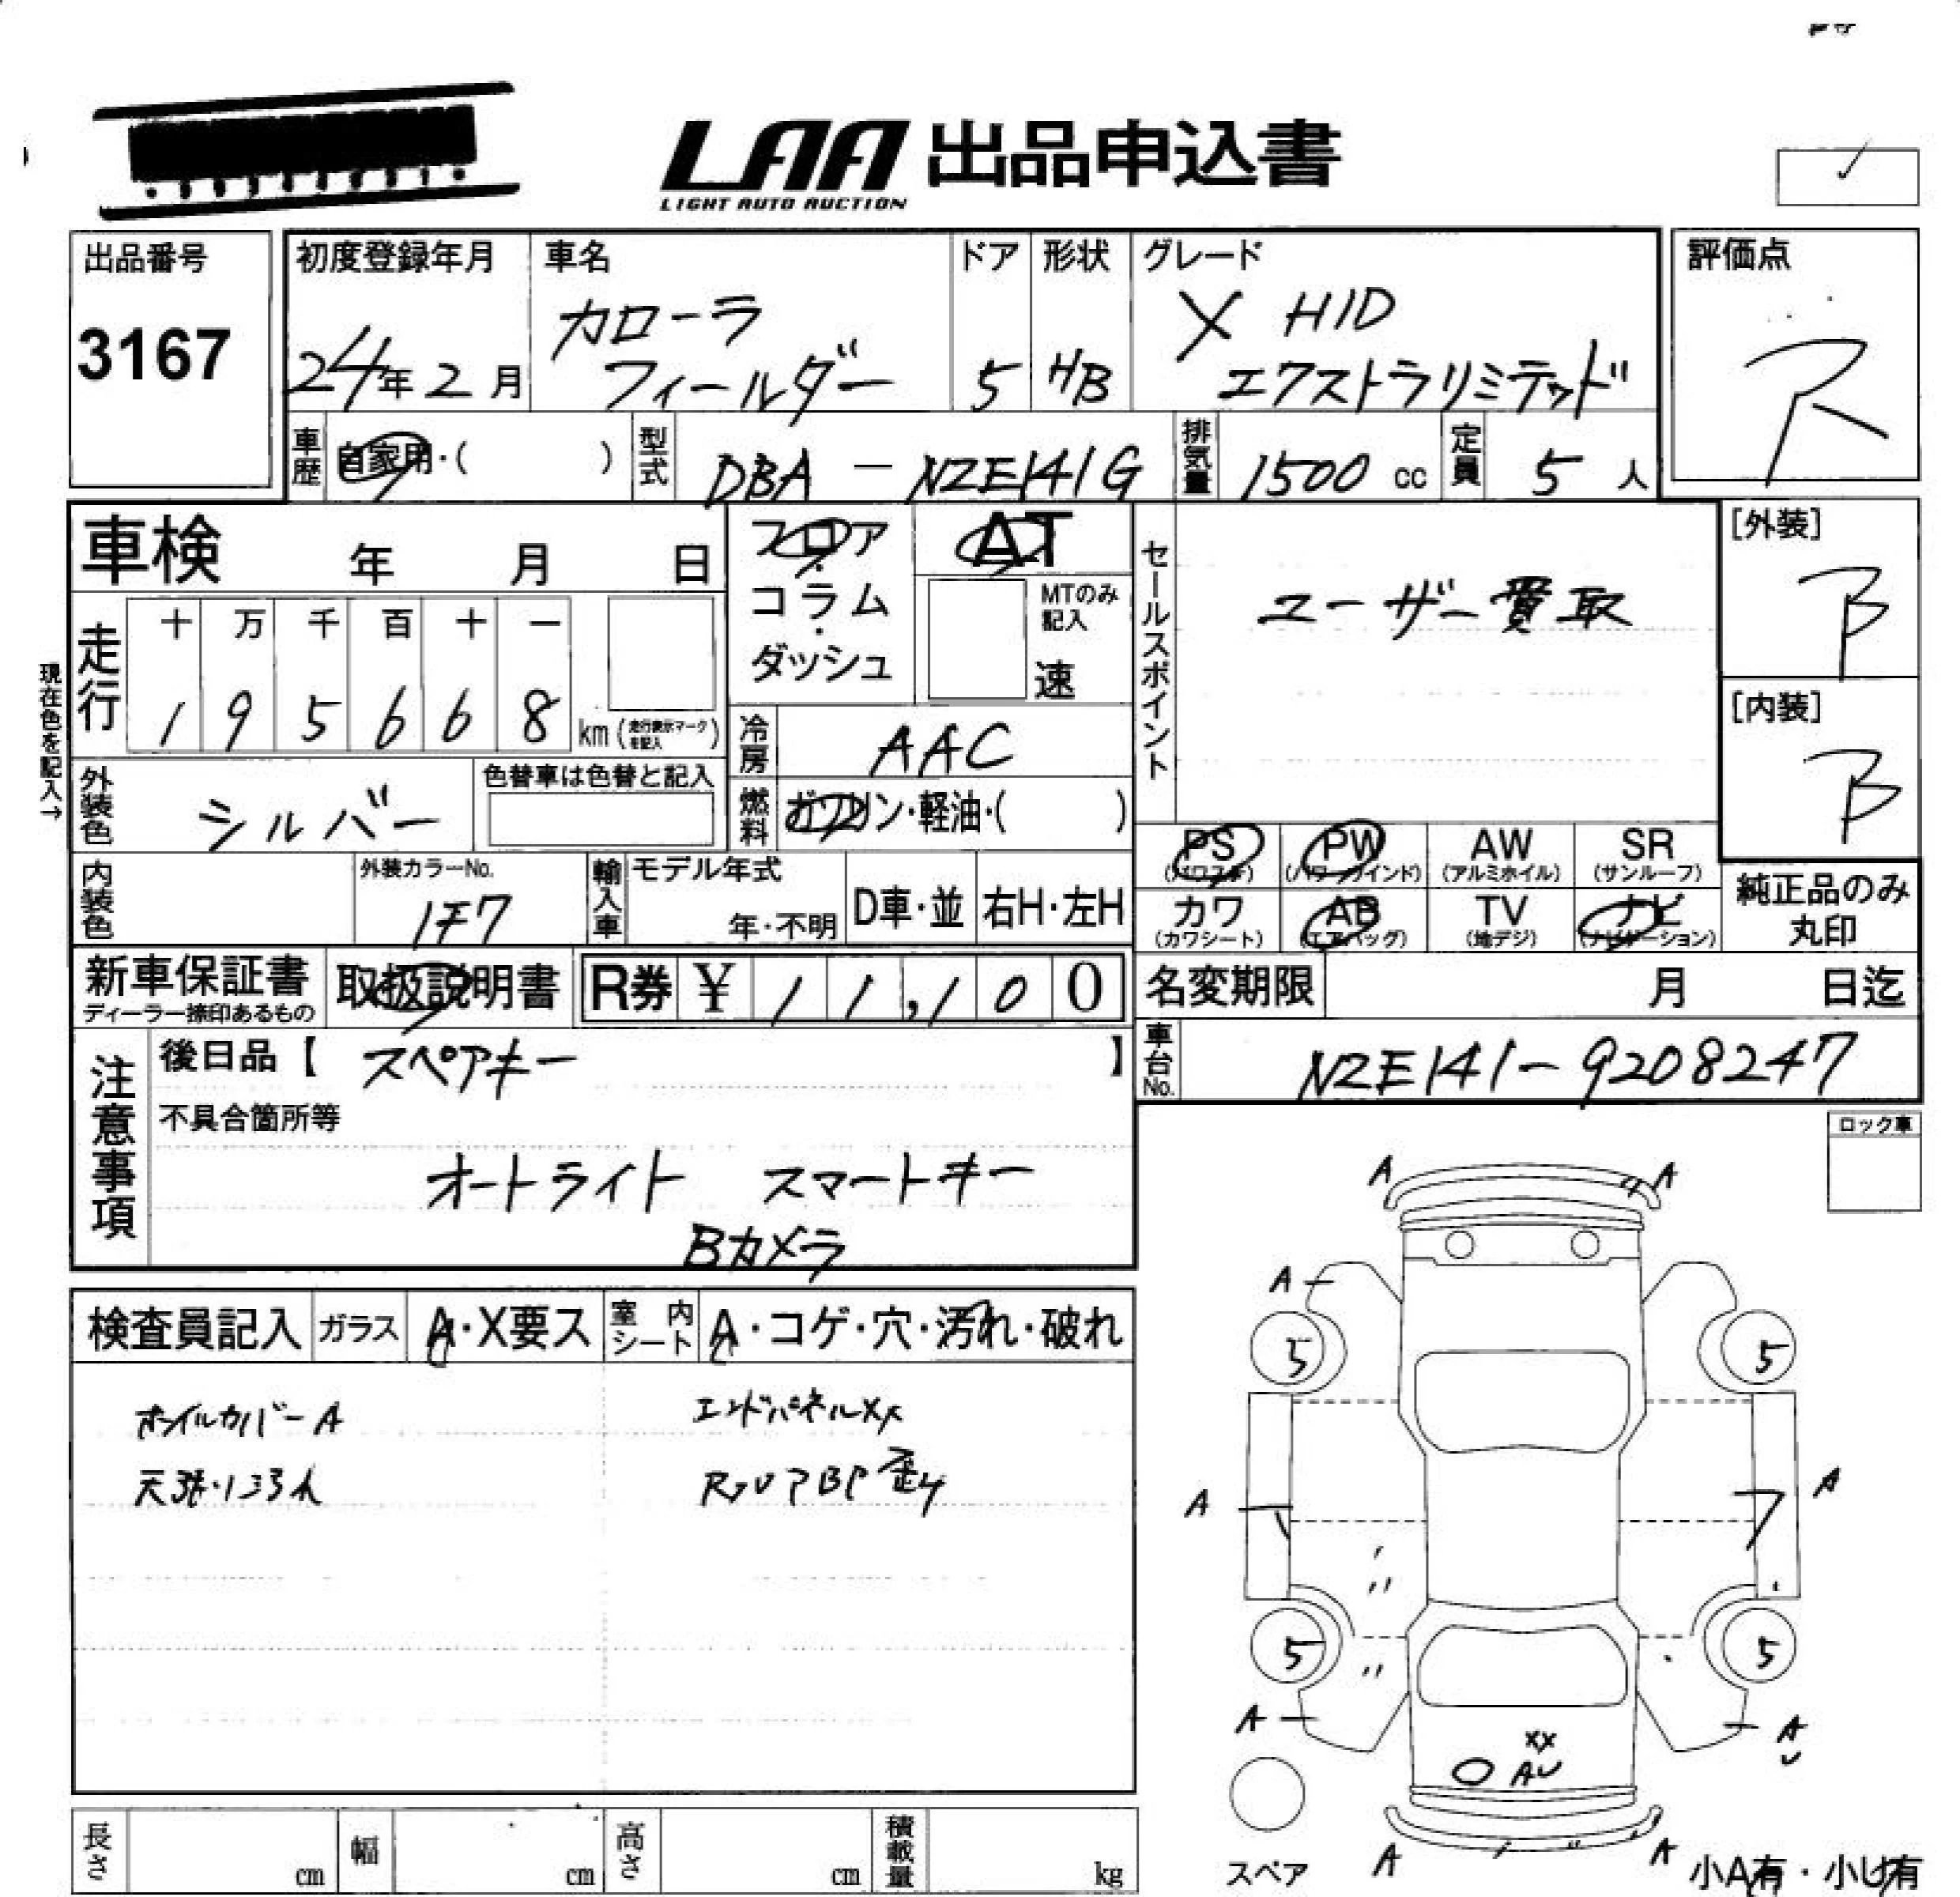 LAA 出品申込書
LIGHT AUTO AUCTION
出品番号
3167
初度登録年月
24年2月
車名
カローラ
フィールダー
ドア
5
形状
HB
グレード
X HID
エクストラリミテッド
評価点
R
車歴 自家用・( )
型式 DBA - NZE141G
排気量 1500 cc
定員 5 人
車検 年 月 日
フロア・コラム・ダッシュ
AT
MTのみ記入
速
セールスポイント
ユーザー買取
[外装]
B
[内装]
B
現在色を記入→
走行
十 万 千 百 十 一
1 9 5 6 6 8 km (走行表示マークを記入)
冷房 AAC
外装色 シルバー
色替車は色替と記入
燃料 ガソリン・軽油・( )
PS (パワステ) PW (パワーウインド) AW (アルミホイル) SR (サンルーフ)
カワ (カワシート) AB (エアバッグ) TV (地デジ) ナビ (ナビゲーション)
純正品のみ丸印
内装色
外装カラーNo.
1F7
輸入車 モデル年式 年・不明 D車・並 右H・左H
新車保証書
ディーラー捺印あるもの
取扱説明書
R券 ¥ 11,100
名変期限 月 日迄
車台No. NZE141-9208247
注意事項
後日品【 スペアキー 】
不具合箇所等
オートライト スマートキー
Bカメラ
ロック車
検査員記入 ガラス A・X要ス 室内シート A・コゲ・穴・汚れ・破れ
ホイルカバーA エンドパネルXX
A A
A
5 5
A A
5 5
A A
XX
AU
A A
スペア
小A有・小U有
長さ cm 幅 cm 高さ cm 積載量 kg